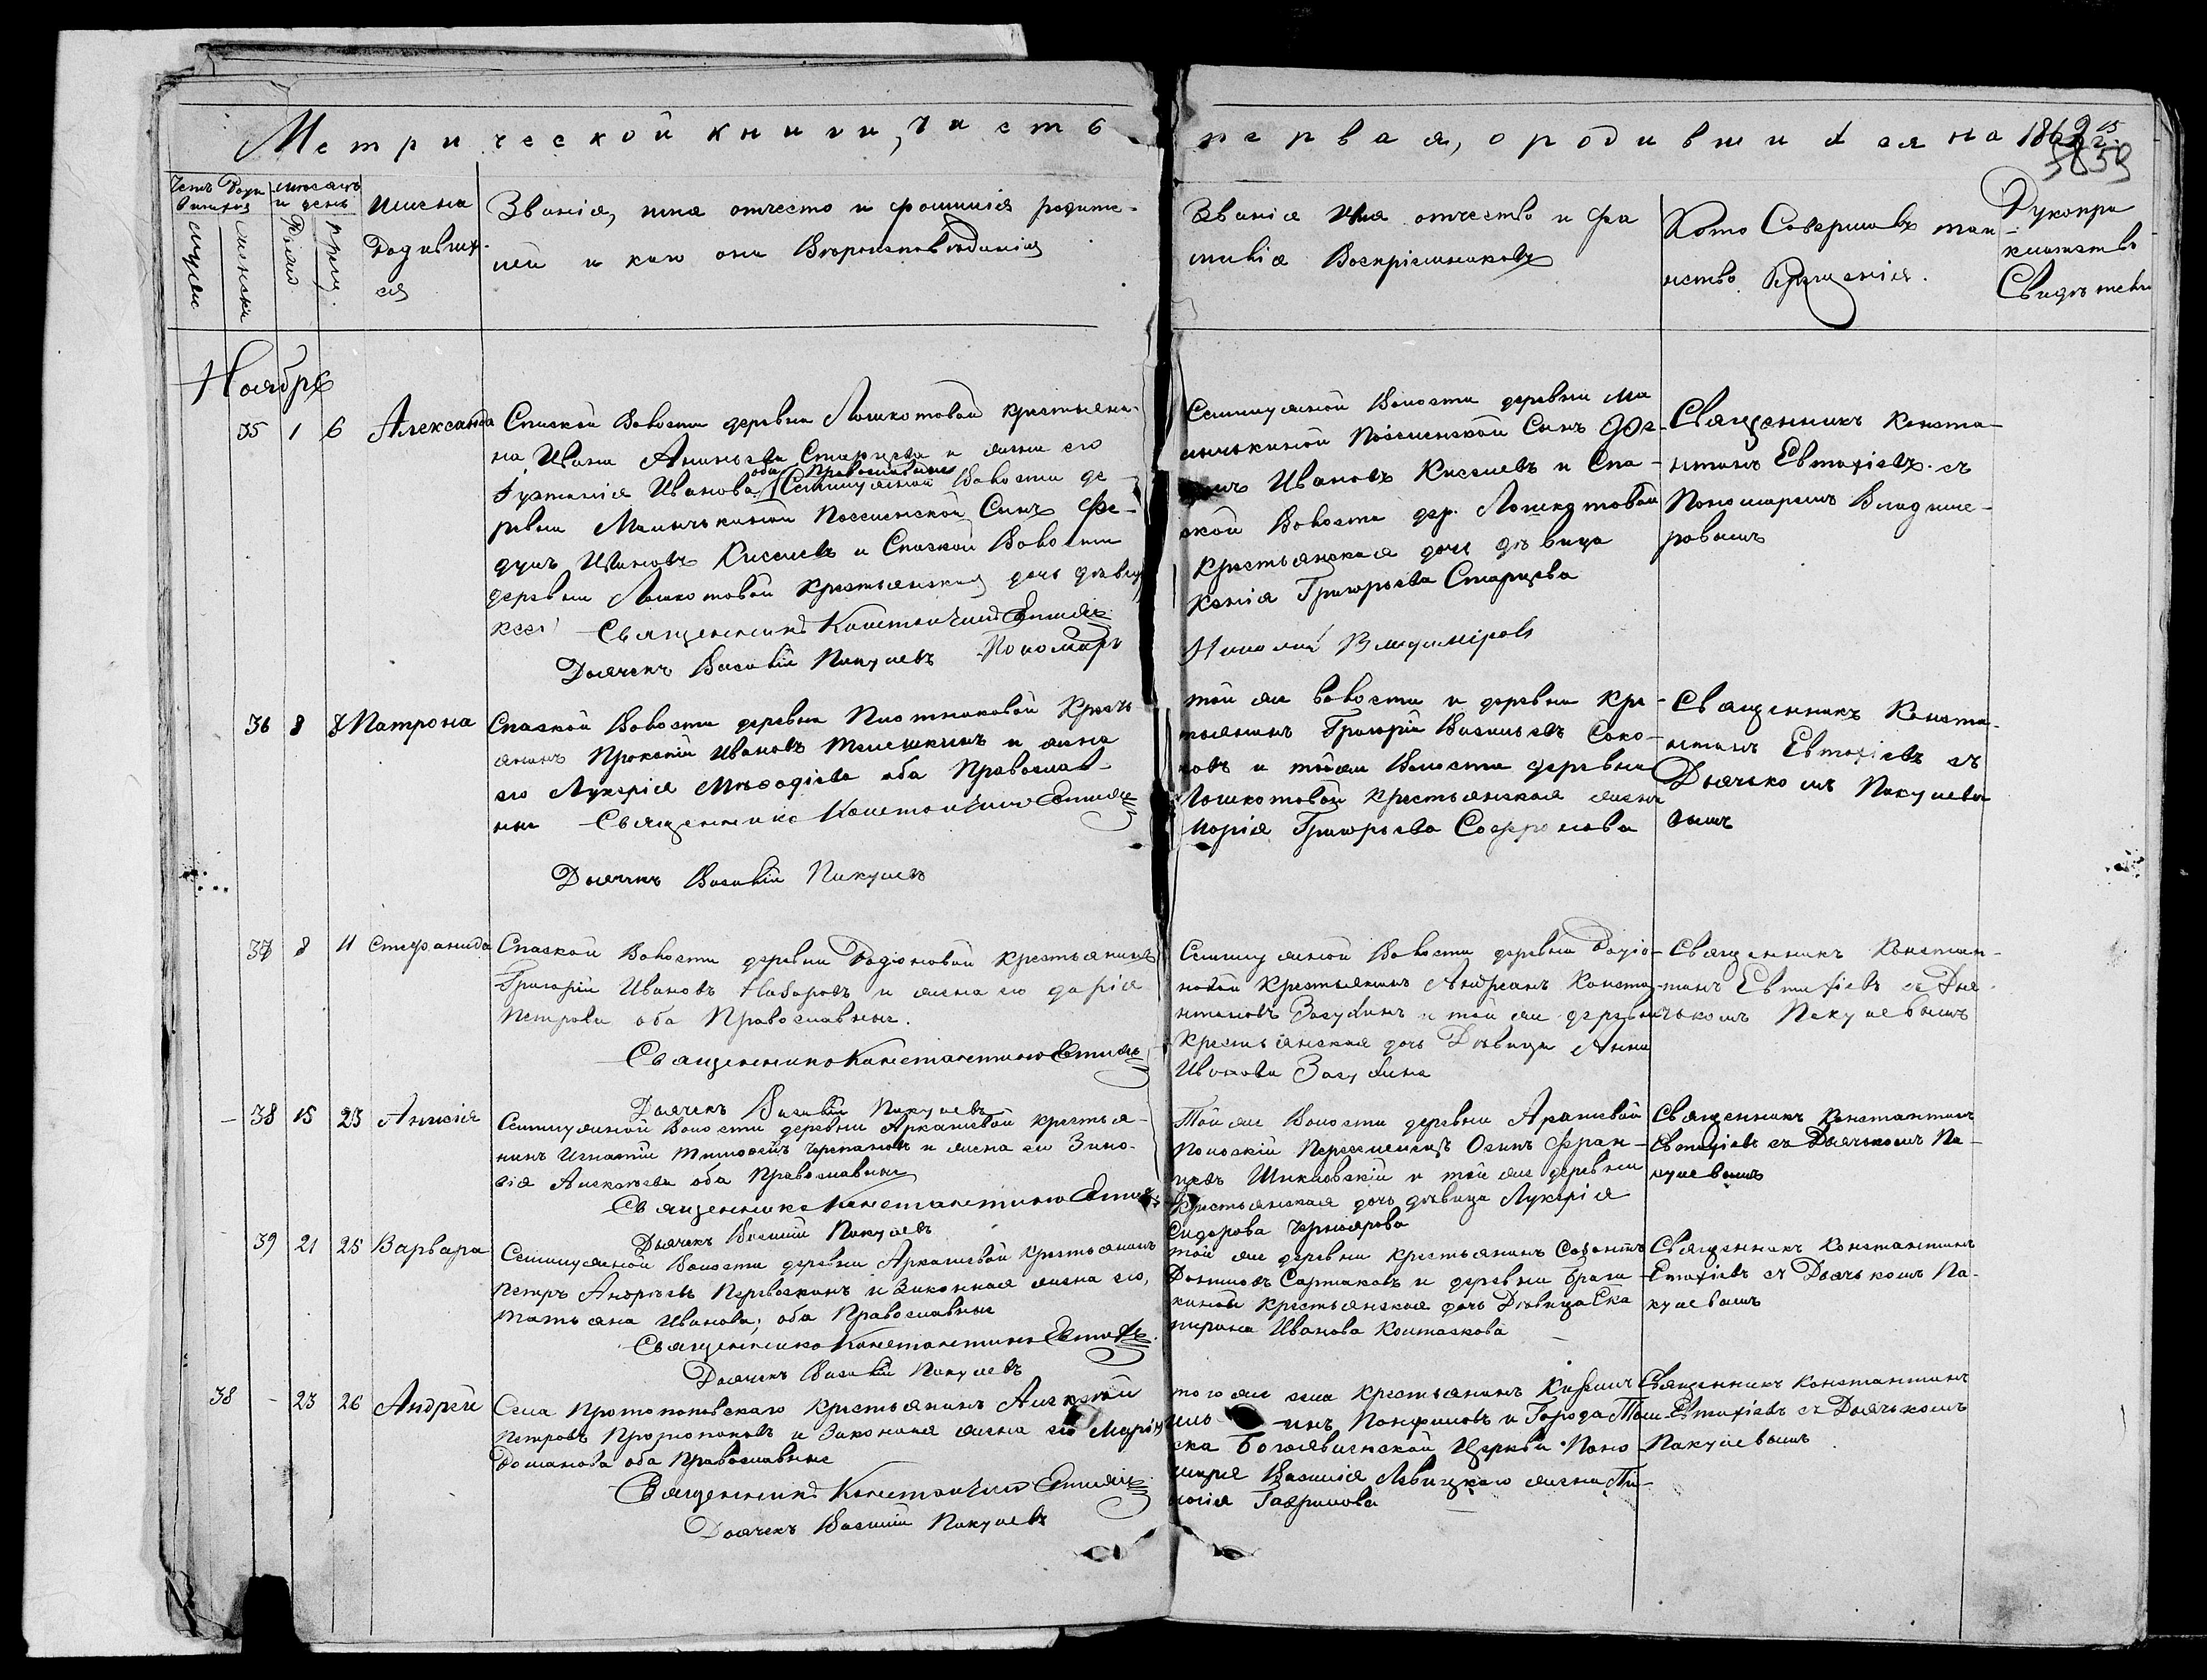 Метрической книги, часть первая, о родившихся на 1862
Имена
Родивших
ся
Званія, имя отчество и фамилія родите-
лей и какого они Вѣроисповѣданія
Званіе имя отчество и фа
милія Воспріемниковъ
Кто Совершалъ таи
нство Крещенія.
Рукопри
кладство
Свидѣтеле
Ноябрь
35 1 6 Александра
Спаской Волости деревни Лошкотовой крестьяни-
на Ивана Ананьева Старцева и жены его
Иванова оба Православные Семилужной Волости де
ревни Поселенской Сынъ Фе-
доръ Ивановъ Киселевъ и Спаской Волости
деревни Лошкотовой Крестьянская дочь дѣвица
Священникъ Константинъ Евтихіевъ
Дьячекъ Василій Пакулевъ Пономарь
Семилужной Волости деревни Ма
Поселенской Сынъ Фе-
Ивановъ Киселевъ и Спа-
ской Волости дер. Лошкотовой
Крестьянская дочь дѣвица
Ксенія Григорьева Старцева
Николай Владиміровъ
Священникъ Конста-
нтинъ Евтихіевъ съ
Пономаремъ Владиме-
ровымъ
36 8 8 Матрона
Спаской Волости деревни Плотниковой Кресть
янинъ Прокопій Ивановъ Телешкинъ и жена
его Лукерія Меѳодіева оба Православ-
ные Священникъ Константинъ Евтихіевъ
Дьячекъ Василій Пакулевъ
той же волости и деревни кре-
стьянинъ Григорій Васильевъ Соко-
ловъ и тойже Волости деревни
Лошкотовой Крестьянская жена
Марія Григорьева Софронова
Священникъ Конста-
нтинъ Евтихіевъ съ
Дьячкомъ Пакулевы
вымъ
37 8 11 Стефанида
Спаской Волости деревни Родіоновой Крестьянинъ
Григорій Ивановъ Набаровъ и жена его Дарія
Петрова оба Православные.
Священникъ Константинъ Евтихіевъ
Дьячекъ Василій Пакулевъ
Семилужной Волости деревни Родіо-
новой Крестьянинъ Андреанъ Конста-
нтиновъ и той же деревни
Крестьянская дочь Дѣвица Анна
Иванова
Священникъ Констан-
тинъ Евтихіевъ съ Дья-
чькомъ Пакулевымъ
38 15 23 Анисія
Семилужной Волости деревни Аркашевой крестья-
нинъ Игнатій Тимоѳеевъ Черепановъ и жена его Зино-
вія Алексѣева оба Православные
Священникъ Константинъ Евтихіевъ
Дьячекъ Василій Пакулевъ
Той же Волости деревни Аркашевой
Полоскій Переселенецъ Осипъ Фран-
цевъ Шикловскій и той же деревни
Крестьянская дочь дѣвица Лукерія
Сидорова Черноярова
Священникъ Константинъ
Евтихіевъ съ Дьячькомъ Па-
кулевымъ
39 21 25 Варвара
Семилужной Волости деревни Аркашевой Крестьянинъ
Петръ Андреевъ Первоскинъ и Законная жена его,
Татьяна Иванова; оба Православные
Священникъ Константинъ Евтихіевъ
Дьячекъ Василій Пакулевъ
той же деревни крестьянинъ
Сартаковъ и деревни Браги
киной крестьянская дочь Дѣвица Ека
терина Иванова Колмакова
Священникъ Константинъ
Евтихіевъ съ Дьячькомъ Па-
кулевымъ
38 - 23 26 Андрей
Села Протопоповскаго Крестьянинъ Алексѣй
Петровъ Протопоповъ и Законная жена его Марія
Романова оба Православные
Священникъ Константинъ Евтихіевъ
Дьячекъ Василій Пакулевъ
того же села Крестьянинъ
Панфиловъ и Города Том-
ска Богоявленской Церкви Поно
маря Василія Левицкаго жена
Гаврилова
Священникъ Константинъ
Евтихіевъ съ Дьячькомъ
Пакулевымъ